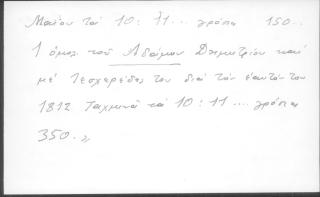 Μαΐου τά 10 : 11 ... γρόσια 150..
1 ὁμολ. τοῦ Ἀδάμου Δημητρίου καί
μέ τεσχερέδες του διά τόν ἑαυτόν του
1812 Ἰαχμινά τά 10 : 11 ... γρόσια
350.